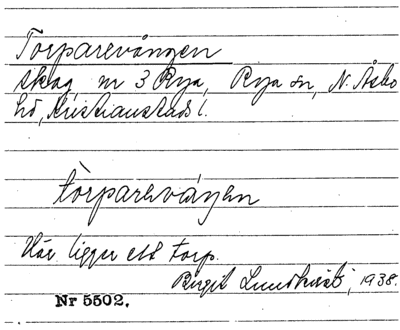 Torparevången
skog, nr 3 Rya, Rya sn, N. Åsbo
hd, Kristianstads l.
tórpareváŋen
Här ligger ett torp.
Birgit Lundkvist, 1938.
Nr 5502.